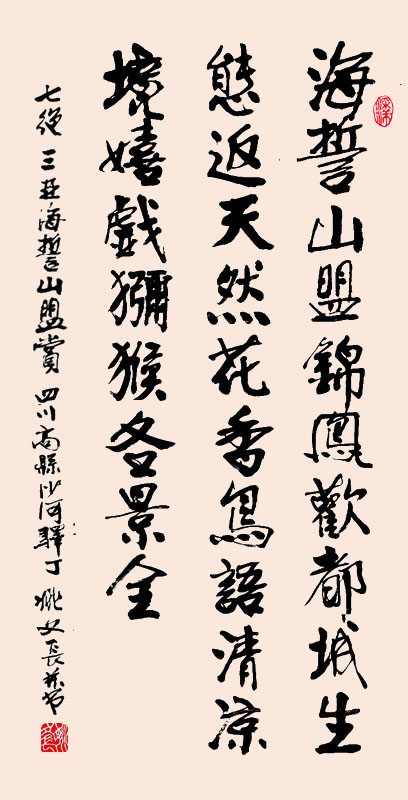 海誓山盟錦鳳歡都城生
態返天然花香鳥語清涼
壤嬉戲獼猴各景全
七絕 三亞海誓山盟賞 四川高縣沙河驛丁 姚文長並书